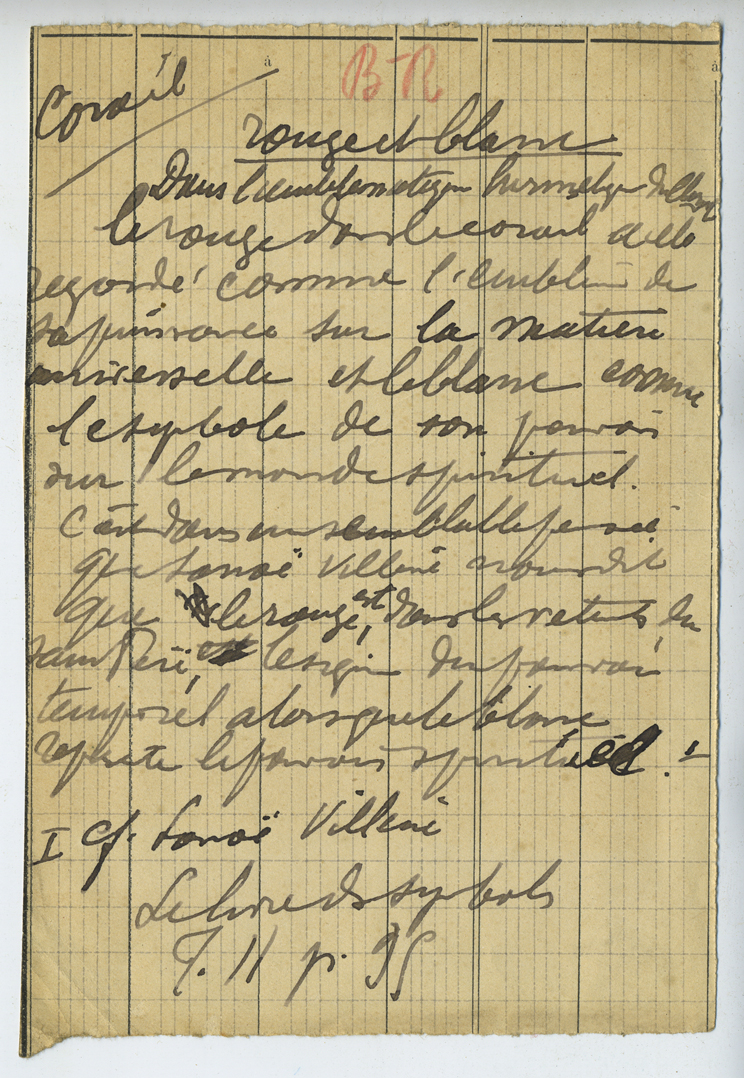 Corail
B-R
rouge et blanc
Dans l'emblématique hermétique du
le rouge dans le corail a été
regardé comme l'emblème de
sa puissance sur la matière
universelle et le blanc comme
le symbole de son pouvoir
sur le monde spirituel.
C'est dans un semblable pensée
que Lanoë Villène nous dit
que le rouge est, dans les vêtements du
Saint Père, le signe du pouvoir
temporel alors que le blanc
le pouvoir spirituel. I
I cf. Lanoë Villène
Le livre des symboles
T. II p. 95